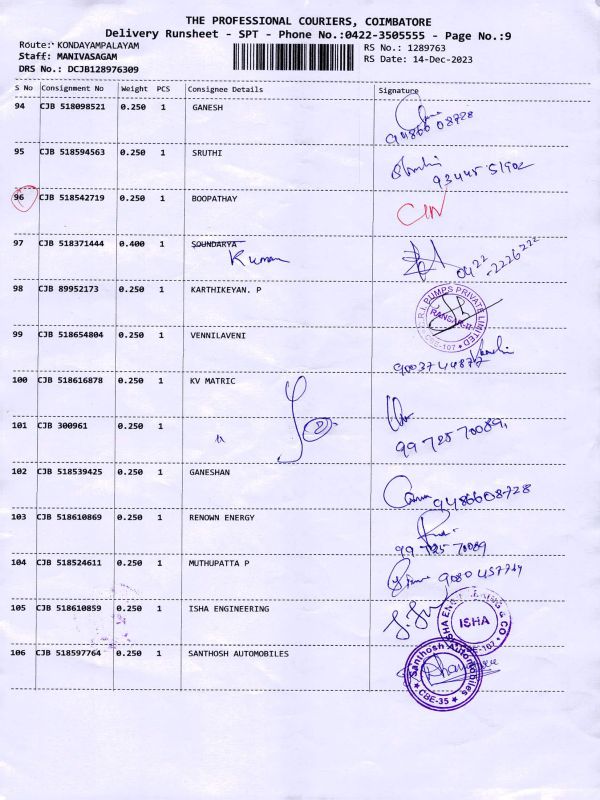 THE PROFESSIONAL COURIERS, COIMBATORE
Delivery Runsheet - SPT - Phone No.:0422-3505555 - Page No.:9
Route: KONDAYAMPALAYAM
Staff: MANIVASAGAM
DRS No.: DCJB128976309
RS No.: 1289763
RS Date: 14-Dec-2023
S No Consignment No Weight PCS Consignee Details Signature
94 CJB 518098521 0.250 1 GANESH
9486608728
95 CJB 518594563 0.250 1 SRUTHI
93445 51902
96 CJB 518542719 0.250 1 BOOPATHAY
97 CJB 518371444 0.400 1 SOUNDARYA
Kumar
0422-2226222
98 CJB 89952173 0.250 1 KARTHIKEYAN. P
R.I. PUMPS PRIVATE LIMITED
CBE-107
99 CJB 518654804 0.250 1 VENNILAVENI
100 CJB 518616878 0.250 1 KV MATRIC
101 CJB 300961 0.250 1
99725 70089
102 CJB 518539425 0.250 1 GANESHAN
9486608728
103 CJB 518610869 0.250 1 RENOWN ENERGY
99725 70089
104 CJB 518524611 0.250 1 MUTHUPATTA P
105 CJB 518610859 0.250 1 ISHA ENGINEERING
ISHA
106 CJB 518597764 0.250 1 SANTHOSH AUTOMOBILES
Santhosh Automobiles
CBE-35